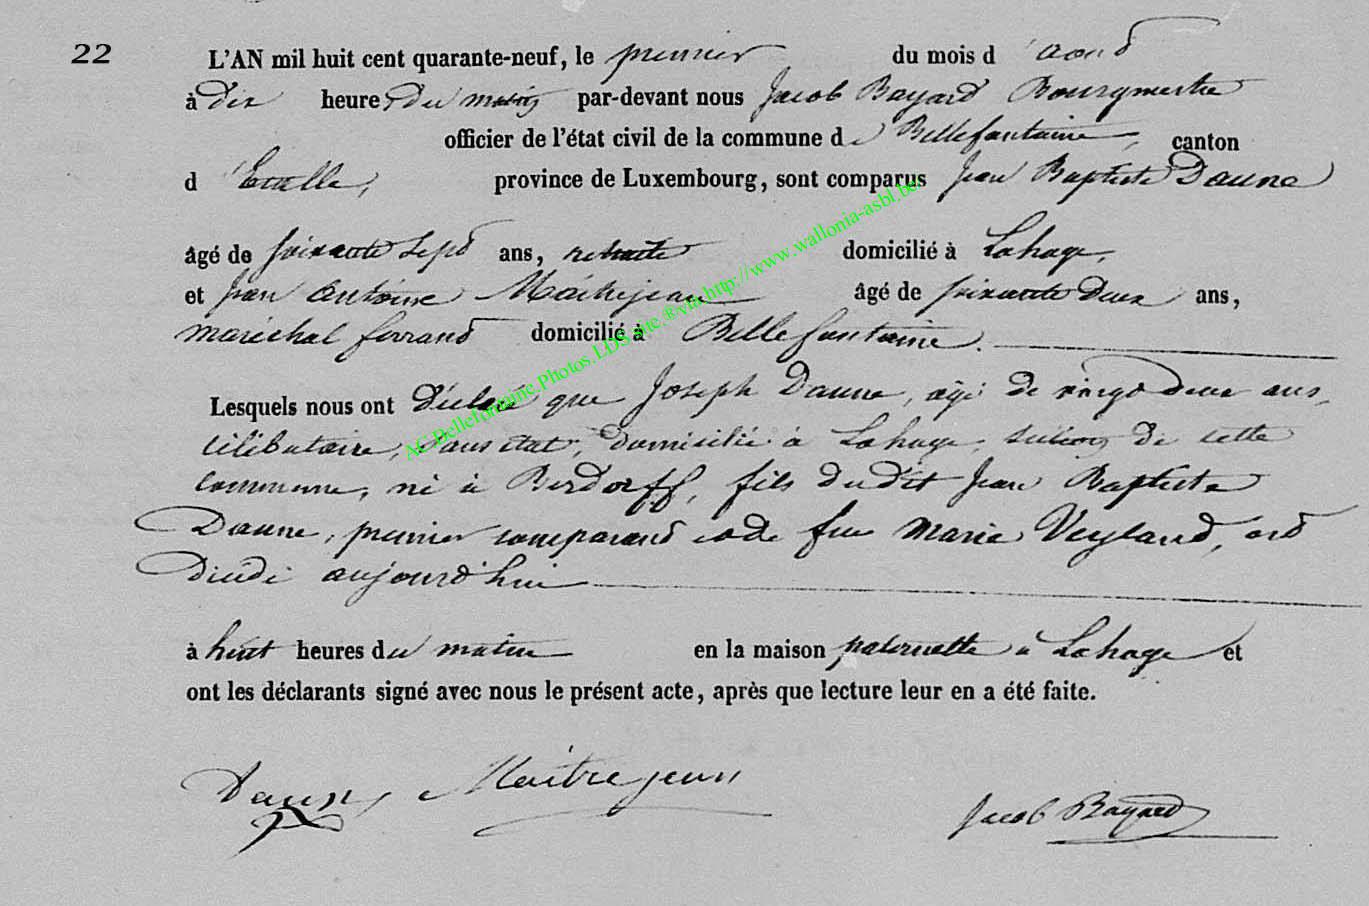 22
L'AN mil huit cent quarante-neuf, le premier du mois d'août
à dix heures du matin par-devant nous Jacob Bayard Bourgmestre
officier de l'état civil de la commune de Bellefontaine, canton
d'Etalle, province de Luxembourg, sont comparus Jean Baptiste Daune
âgé de soixante sept ans, retraité domicilié à Lahage,
et Jean Antoine Maitrejean âgé de soixante deux ans,
maréchal ferrand domicilié à Bellefontaine.
Lesquels nous ont déclaré que Joseph Daune, agé de vingt deux ans,
célibataire, sans état, domicilié à Lahage, section de cette
commune, né à Berdorff, fils dudit Jean Baptiste
Daune, premier comparant et de feue Marie Veyland, est
décédé aujourd'hui
à huit heures du matin en la maison paternelle à Lahage et
ont les déclarants signé avec nous le présent acte, après que lecture leur en a été faite.
Daune Maitrejean
Jacob Bayard
AC.Bellefontaine.Photos.LDS site.®via http://www.wallonia-asbl.be/